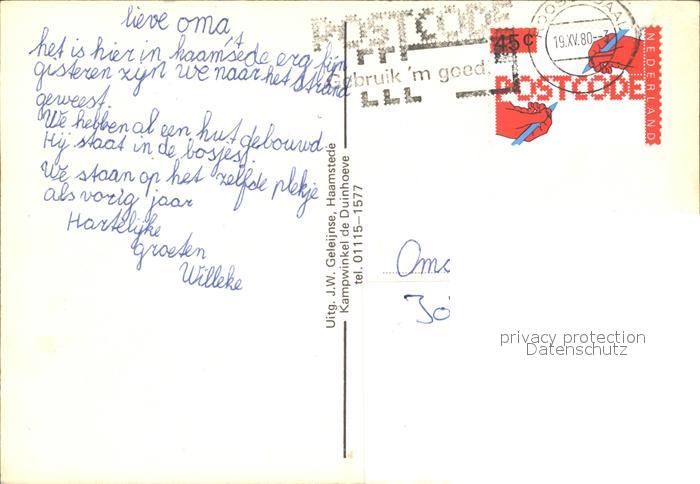 lieve oma,
het is hier in haamstede erg fijn
gisteren zijn we naar het strand
geweest.
We hebben al een hut gebouwd
Hij staat in de bosjes.
We staan op het zelfde plekje
als vorig jaar
Hartelijke
groeten
Willeke
Uitg. J.W. Geleijnse, Haamstede
Kampwinkel de Duinhoeve
tel. 01115-1577
POSTCODE
Gebruik 'm goed.
19.XV.80
45c
POSTCODE
NEDERLAND
privacy protection
Datenschutz